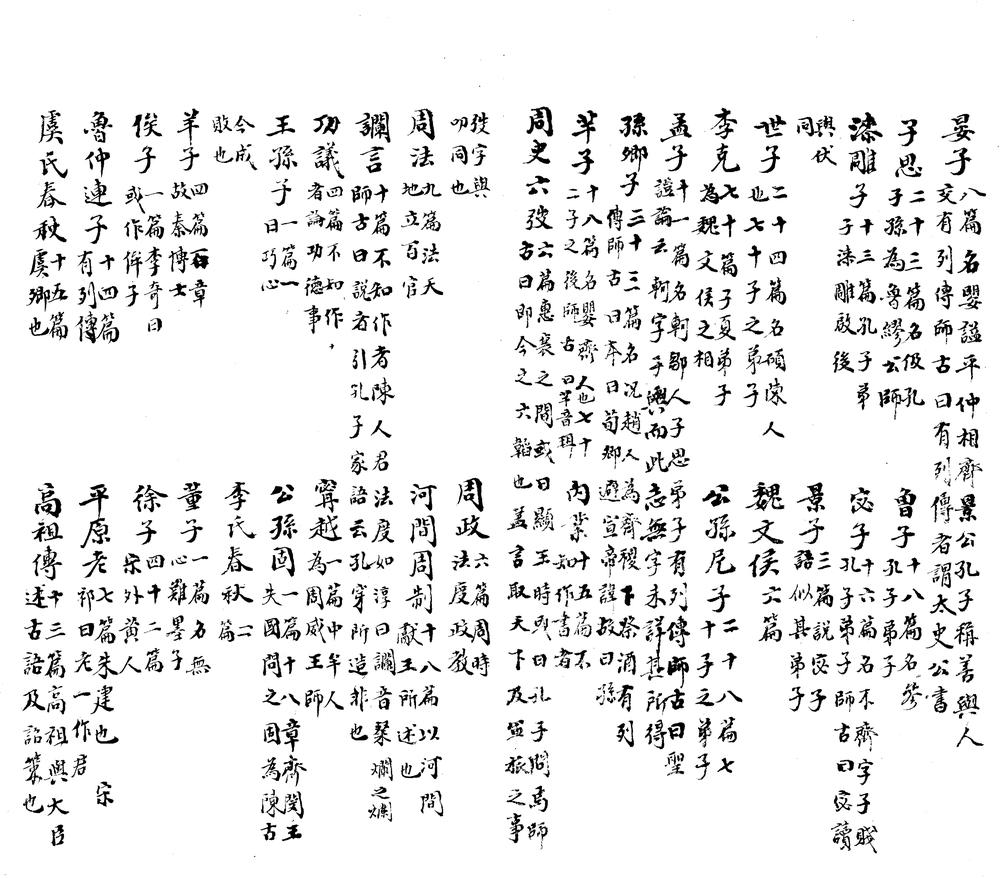 晏子八篇名嬰謚平仲相齊景公孔子稱善與人
交有列傳師古曰有列傳者謂太史公書
子思二十三篇名伋孔
子孫為魯繆公師
曾子十八篇名參
孔子弟子
漆雕子十三篇孔子弟
子漆雕啟後
宓子十六篇名不齊字子賤
孔子弟子師古曰宓讀
與伏
同
景子三篇說宓子
語似其弟子
世子二十四篇名碩陳人
也七十子之弟子
魏文侯六篇
李克七十篇子夏弟子
為魏文侯之相
公孫尼子二十八篇七
十子之弟子
孟子十一篇名軻鄒人子思弟子有列傳師古曰聖
證論云軻字子輿而此志無字未詳其所得
孫卿子三十三篇名况趙人為齊稷下祭酒有列
傳師古曰本曰荀卿避宣帝諱故曰孫
芈子十八篇名嬰齊人也七十
二子之後師古曰芈音弭
內業十五篇不
知作書者
周史六弢六篇惠襄之間或曰顯王時或曰孔子問焉師
古曰即今之六韜也蓋言取天下及軍旅之事
弢字與
叨同也
周政六篇周時
法度政教
周法九篇法天
地立百官
河間周制十八篇以河間
獻王所述也
讕言十篇不知作者陳人君法度如淳曰讕音粲爛之爛
師古曰說者引孔子家語云孔穿所造非也
功議四篇不知作
者論功德事
甯越一篇中牟人
為周威王師
王孫子一篇一
曰巧心
公孫固一篇十八章齊閔王
失國問之固為陳古
今成
敗也
李氏春秋二
篇
羊子四篇百章
故秦博士
董子一篇名無
心難墨子
俟子一篇李奇曰
或作侔子
徐子四十二篇
宋外黃人
魯仲連子十四篇
有列傳
平原老七篇朱建也 宋
祁曰老一作君
虞氏春秋十五篇
虞卿也
高祖傳十三篇高祖與大臣
述古語及詔策也